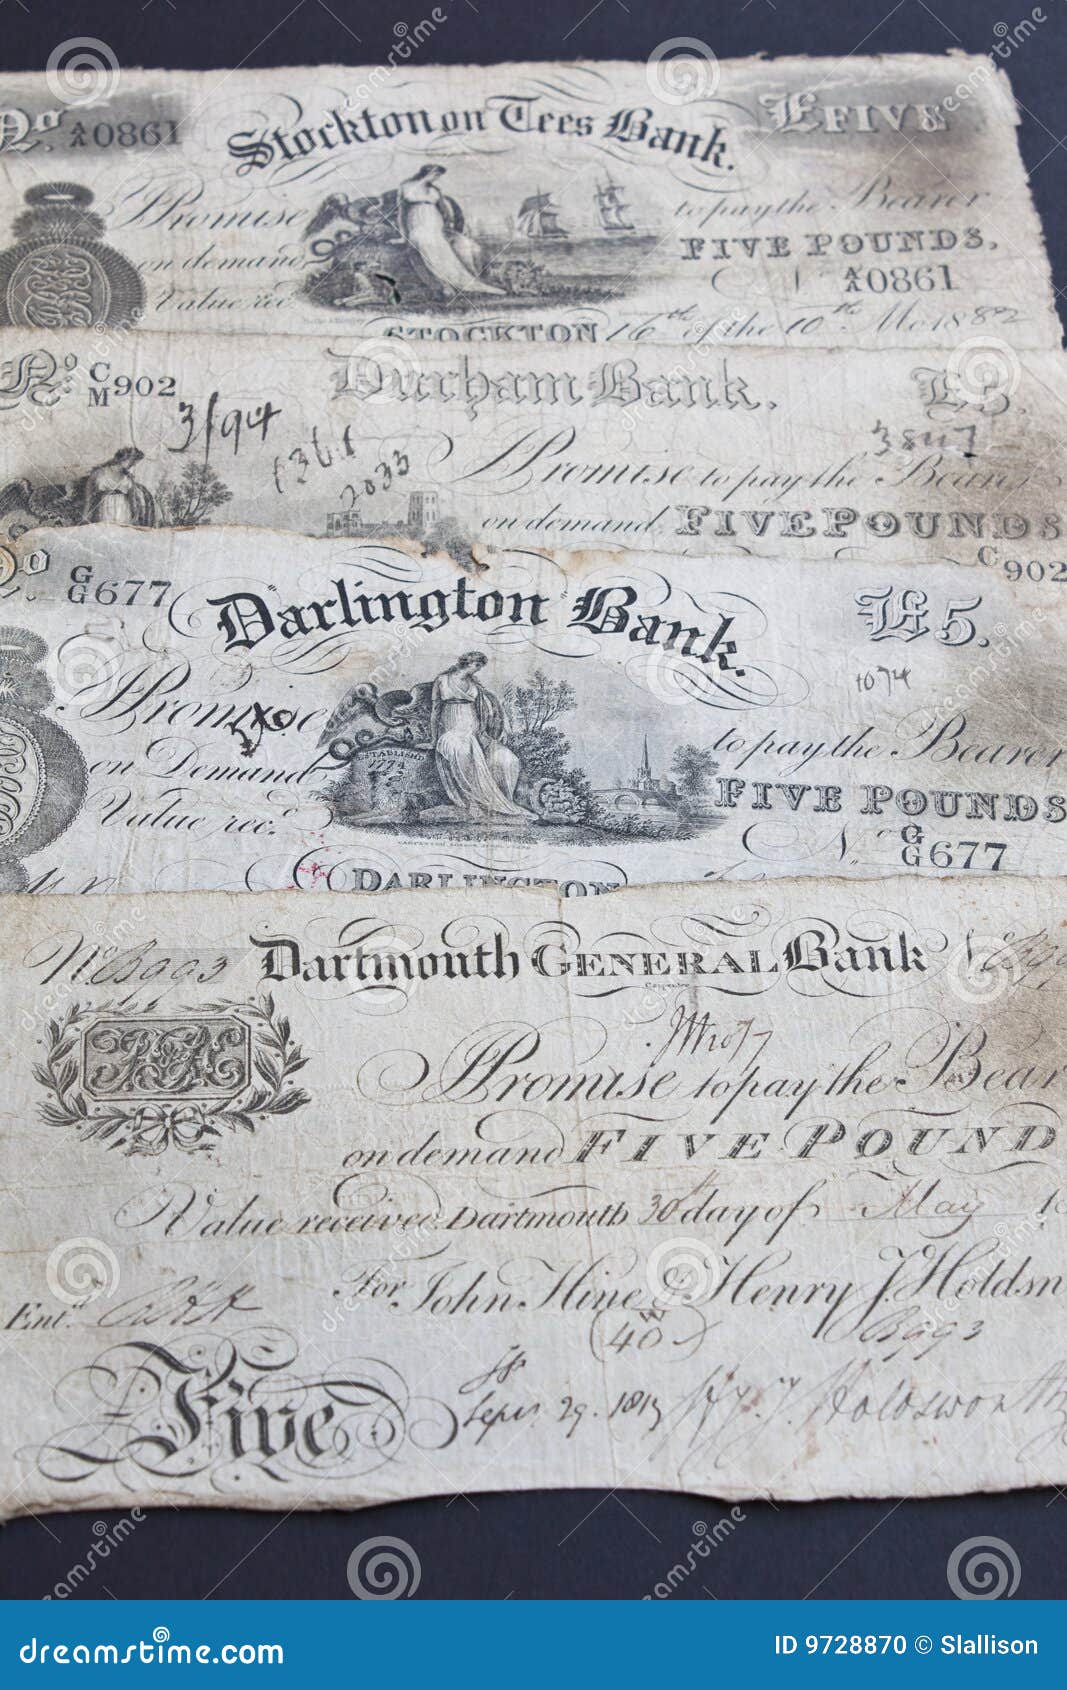 No. A/A 0861 Stockton on Tees Bank. £FIVE
Promise to pay the Bearer
on demand FIVE POUNDS.
Value rec A/A 0861
STOCKTON 16th of the 10th Mo 1882
No. C/M 902 Durham Bank. £5.
3/94 1361 3847
2033 Promise to pay the Bearer
on demand FIVE POUNDS
C 902
No G/G 677 Darlington Bank. £5.
1074
Promise to pay the Bearer
ESTABLISHED 1774
on Demand FIVE POUNDS
Value rec. No G/G 677
DARLINGTON
No B993 Dartmouth GENERAL Bank
Carpenter
Promise to pay the Bear
on demand FIVE POUND
Value received Dartmouth 30th day of May 18
For John Hine & Henry J. Holdsw
Ent.d (40) B993
Five Sepr. 29. 1813 Holdsworth
dreamstime.com ID 9728870 © Slallison